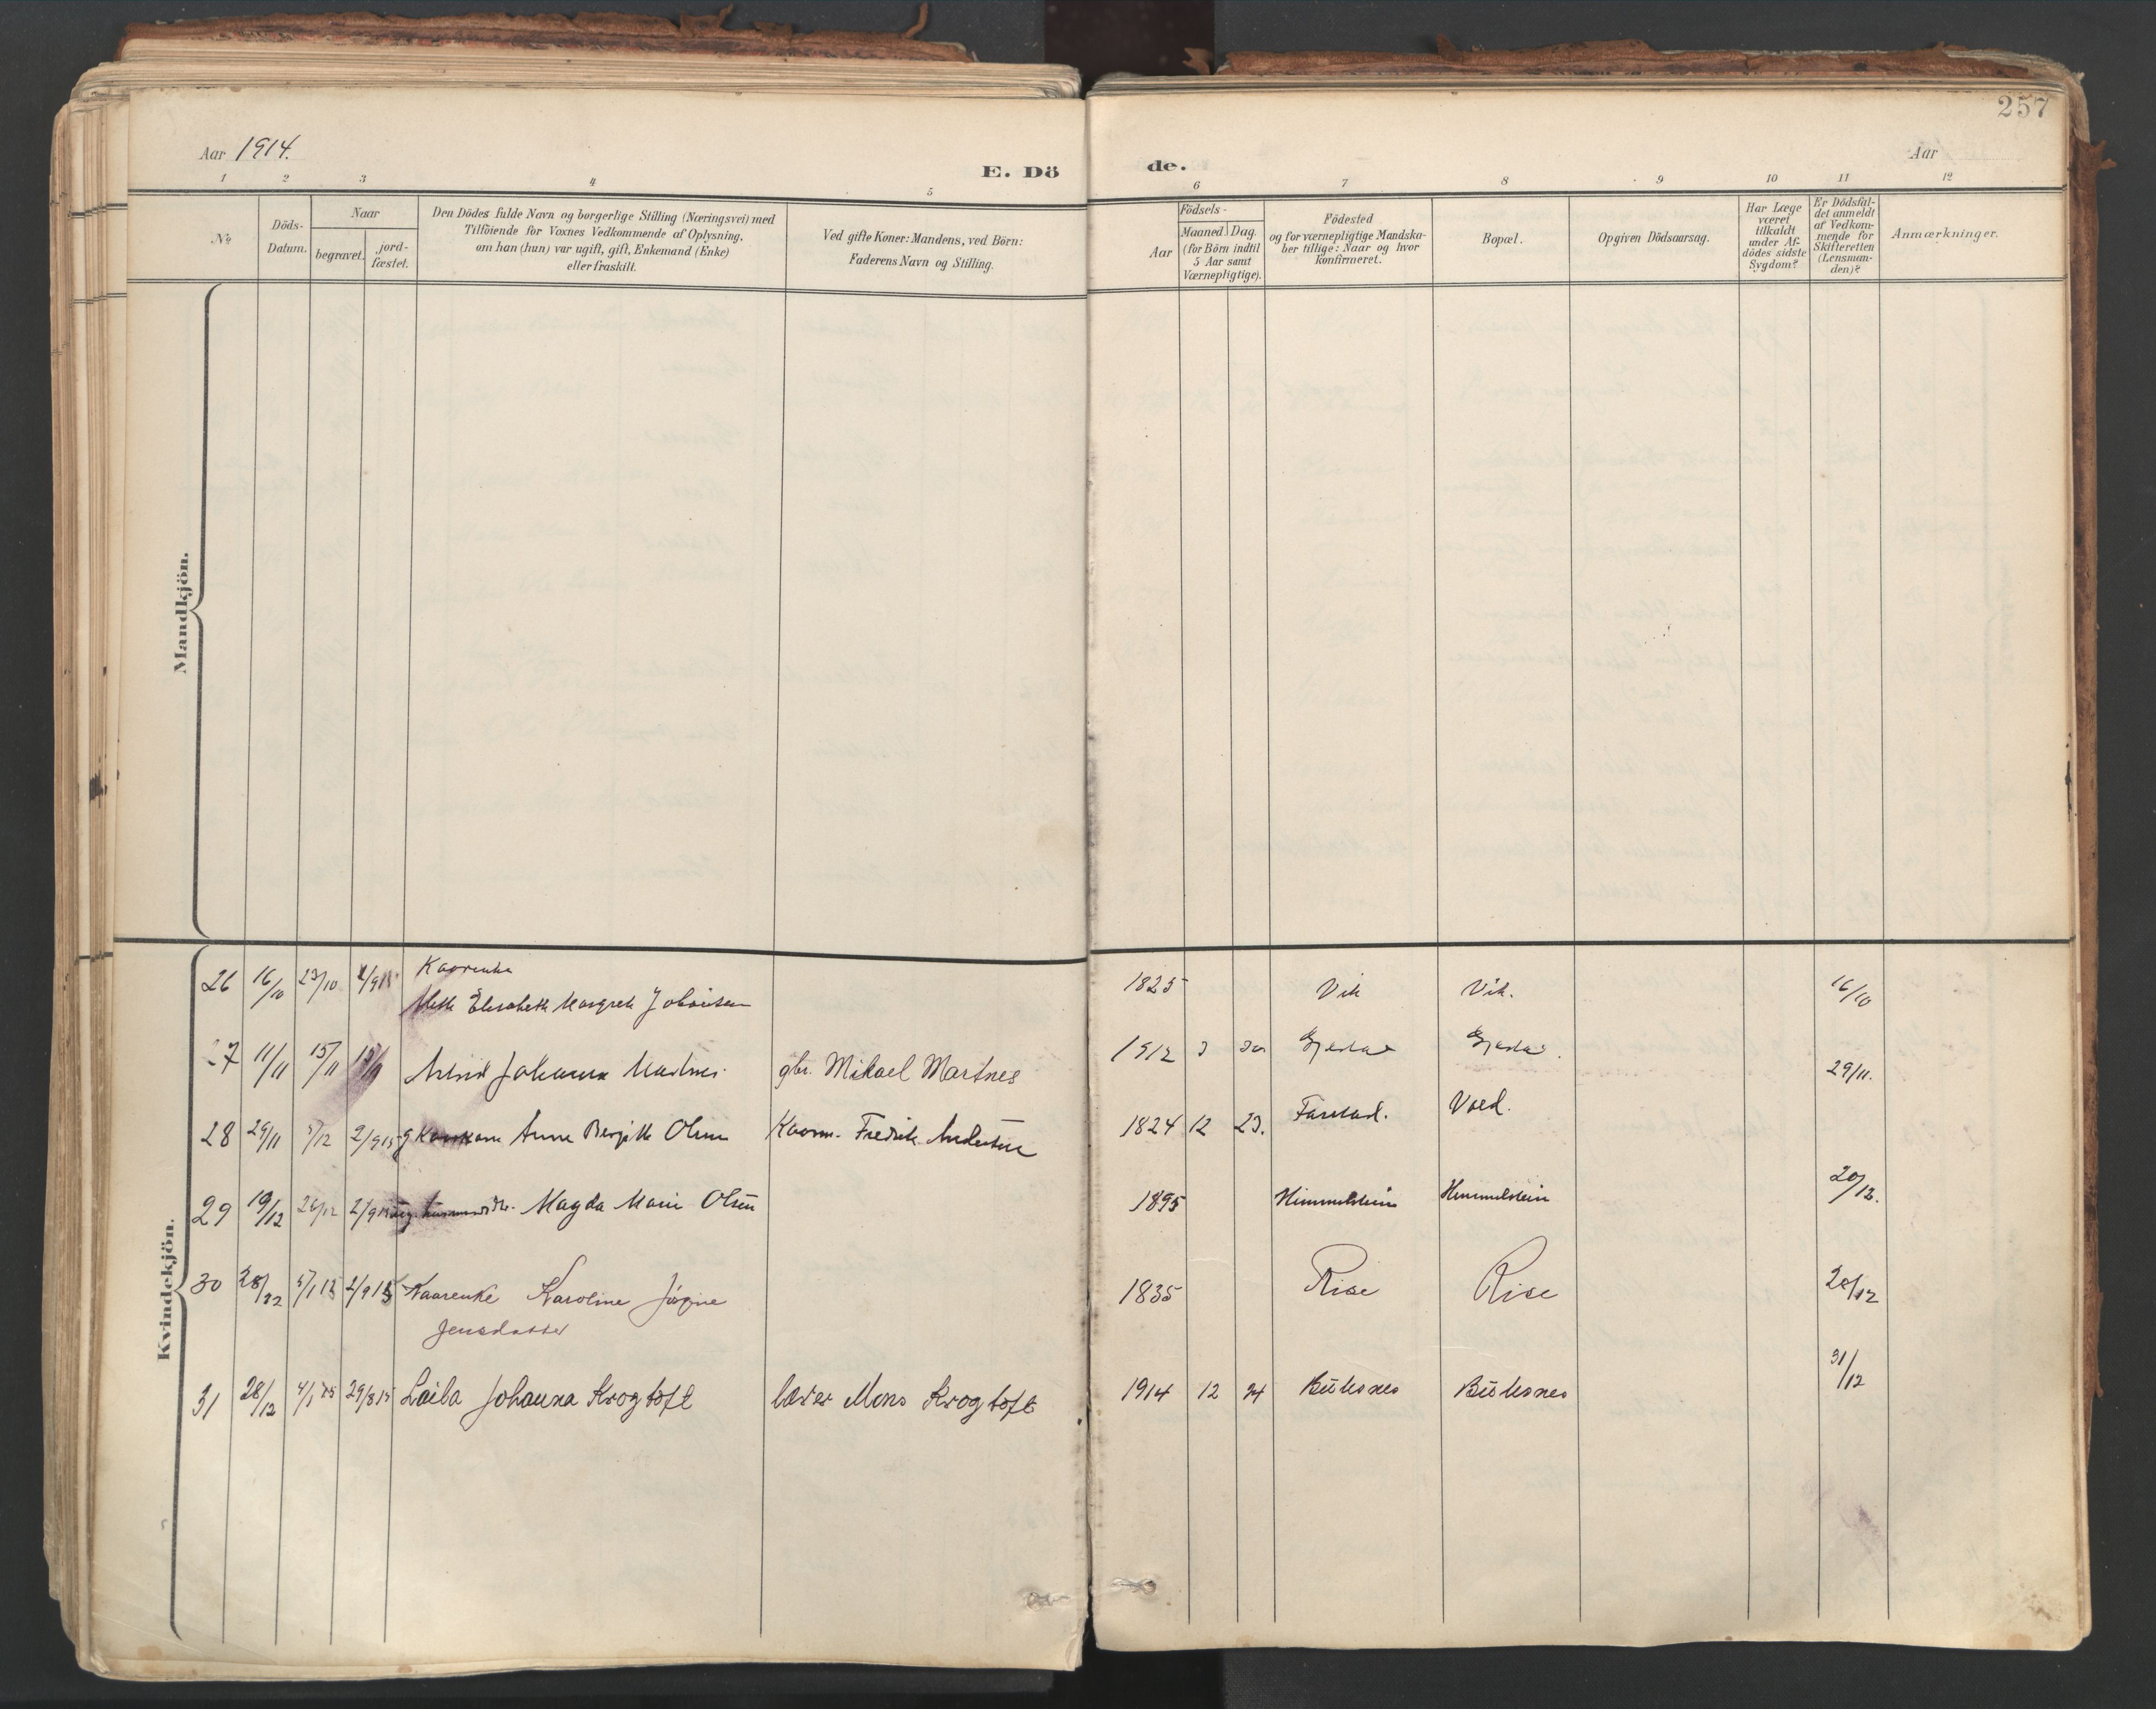 257
Aar 1914.
E. Dö de.
Aar
1 2 3 4 5 6 7 8 9 10 11 12
No
Döds-
Datum.
Naar
begravet.
jord-
fæstet.
Den Dödes fulde Navn og borgerlige Stilling (Næringsvei) med
Tilföiende for Voxnes Vedkommende af Oplysning,
om han (hun) var ugift, gift, Enkemand (Enke)
eller fraskilt.
Ved gifte Koner: Mandens, ved Börn:
Faderens Navn og Stilling.
Födsels-
Aar
Maaned Dag.
(for Börn indtil
5 Aar samt
Værnepligtige).
Födested
og for værnepligtige Mandska-
ber tillige: Naar og hvor
konfirmeret.
Bopæl.
Opgiven Dödsaarsag.
Har Læge
været
tilkaldt
under Af-
dödes sidste
Sygdom?
Er Dödsfal-
det anmeldt
af Vedkom-
mende for
Skifteretten
(Lensman-
den)?
Anmærkninger.
Mandkjön.
Kvindekjön.
Kaarenke
26 16/10 23/10 Elisabeth Margrete Johansen 1825 Vik Vik. 16/10
27 11/11 15/11 Johanna Martnes gbr. Mikael Martnes 1912 29/11.
28 29/11 2/915 g Anne Bergitte Olsen Kaarm. Fredrik Andersen 1824 12 23. Farstad. Vold.
29 19/12 26/12 2/915 Magda Marie Olsen 1895 Himmelstein Himmelstein 20/12.
30 28/12 2/915 Kaarenke Karoline Jörgine 1835 Rise Rise 28/12
Jensdatter
31 28/12 4/1 15 29/8 15 Laila Johanna Krogtoft lærer Mons Krogtoft 1914 12 24 Buksnes Buksnes 31/12